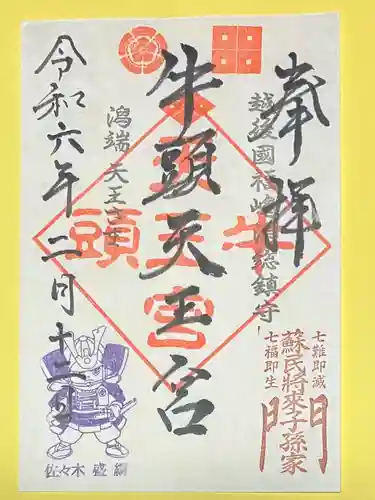 奉拝
越後國
総鎮守
牛頭天王宮
牛頭天王宮
潟端 天王さま
令和六年二月十二日
七難即滅
蘇民将来子孫家門
七福即生
佐々木 盛綱